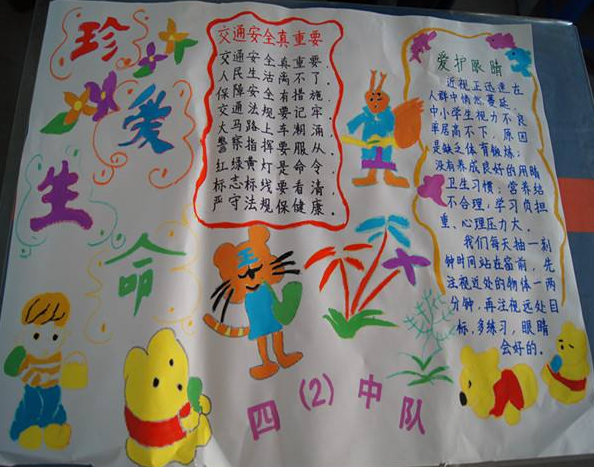 珍
爱
生
命
交通安全真重要
交通安全真重要，
人民生活离不了。
保障安全有措施，
交通法规要记牢。
大马路上车潮涌，
警察指挥要服从。
红绿黄灯是命令，
标志标线要看清，
严守法规保健康。
爱护眼睛
近视正迅速在
人群中悄然蔓延，
中小学生视力不良
率居高不下，原因
是缺乏体育锻炼；
没有养成良好的用眼
卫生习惯；营养结
不合理，学习负担
重、心理压力大。
我们每天抽一刻
钟时间站在窗前，先
注视近处的物体一两
分钟，再注视远处目
标，多练习，眼睛
会好的。
四（2）中队